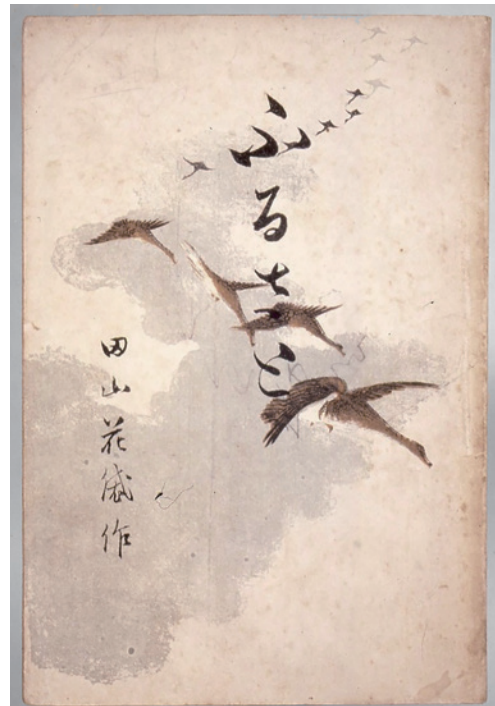 ふるさと
田山花袋作